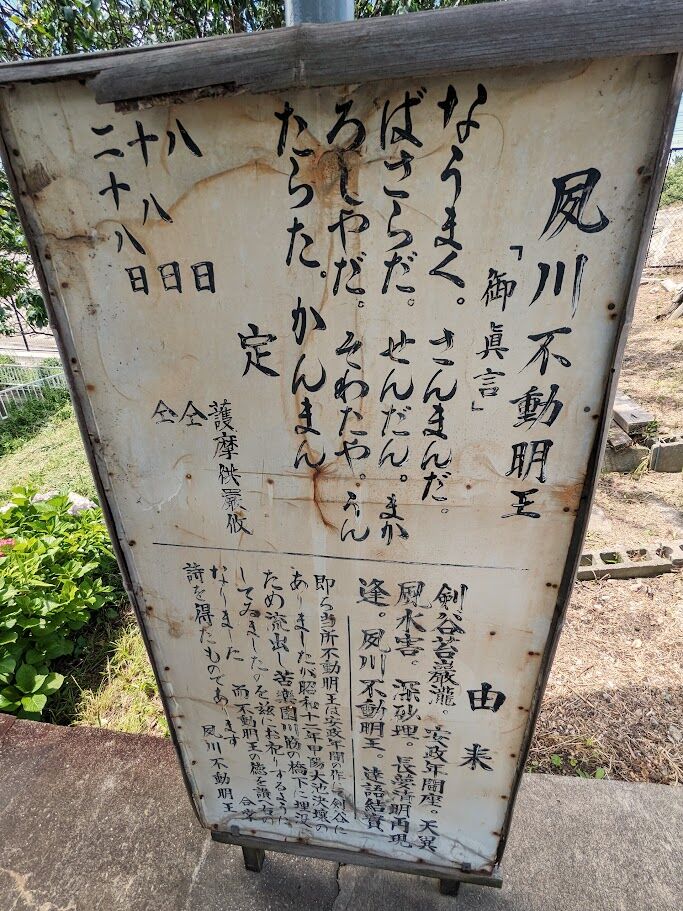 夙川不動明王
「御眞言」
なうまく。さんまんだ。
ばさらだ。せんだん。まか
ろしやだ。そわたや。うん
たらた。かんまん
定
八日 護摩供厳修
十八日 仝
二十八日 仝
由来
剣谷苔巌瀧。安政年間座。天異
風水害。深砂埋。長夢清明再現
逢。夙川不動明王。達語結實
即ち当所不動明王は安政年間の作で剣谷に
ありましたが昭和十三年甲陽大池決壊の
ため流出し苦楽園川筋の橋下に埋没
してゐましたのを茲にお祀りするように
なりました 而不動明王の徳を讃へこの
詩を得たものであります 合掌
夙川不動明王